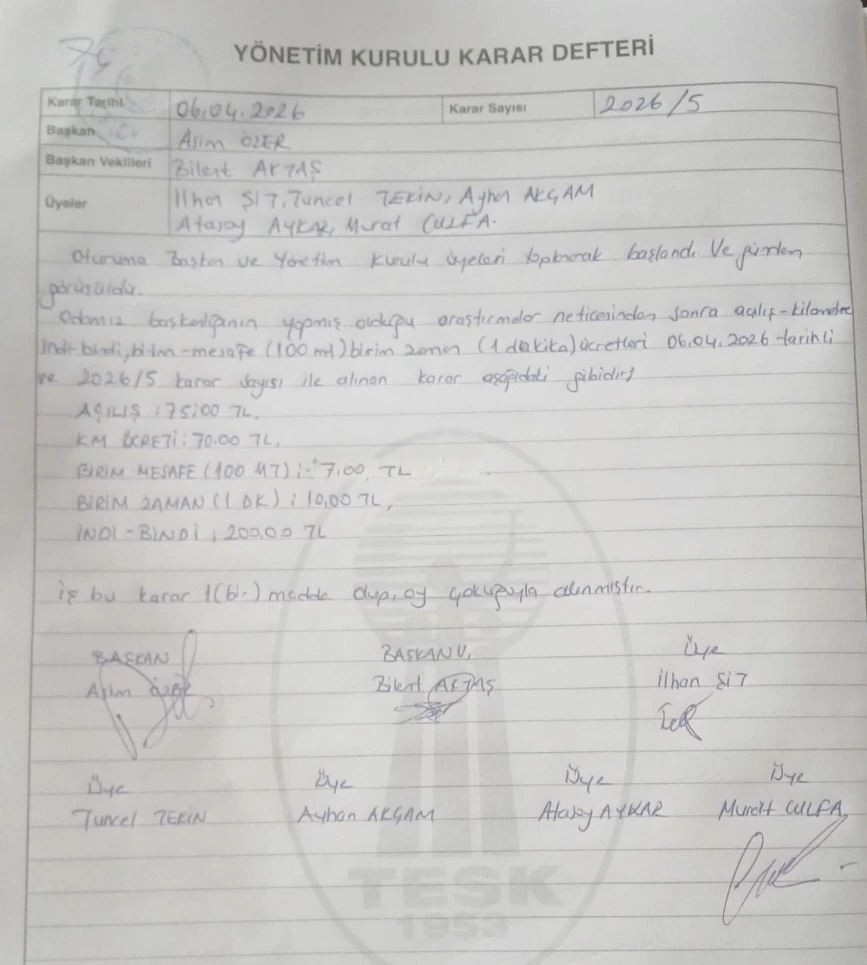 75
YÖNETİM KURULU KARAR DEFTERİ
Karar Tarihi 06.04.2026 Karar Sayısı 2026/5
Başkan Asim ÖZER
Başkan Vekilleri Bilert AKTAŞ
Üyeler İlhan ŞİT, Tuncel TEKİN, Ayhan AKÇAM
Atasoy AYKAR, Murat CULFA.
Oturuma Başkan ve Yönetim Kurulu üyeleri toplanarak başlandı. Ve günden
görüşüldü.
Odamız başkanlığının yapmış olduğu araştırmalar neticesinden sonra açılış-kilometre
indi-bindi, birim-mesafe (100 mt) birim zaman (1 dakika) ücretleri 06.04.2026 tarihli
ve 2026/5 karar sayısı ile alınan karar aşağıdaki gibidir;
AÇILIŞ : 75,00 TL.
KM ÜCRETİ : 70.00 TL.
BİRİM MESAFE (100 MT) : 7,00 TL
BİRİM ZAMAN (1 DK) : 10,00 TL,
İNDİ-BİNDİ ; 200,00 TL
İş bu karar 1(bir) madde olup, oy çokluğuyla alınmıştır.
BAŞKAN BAŞKAN V, Üye
Asim ÖZER Bilert AKTAŞ İlhan ŞİT
Üye Üye Üye Üye
Tuncel TEKİN Ayhan AKÇAM Atasoy AYKAR Murat CULFA
TESK
1953